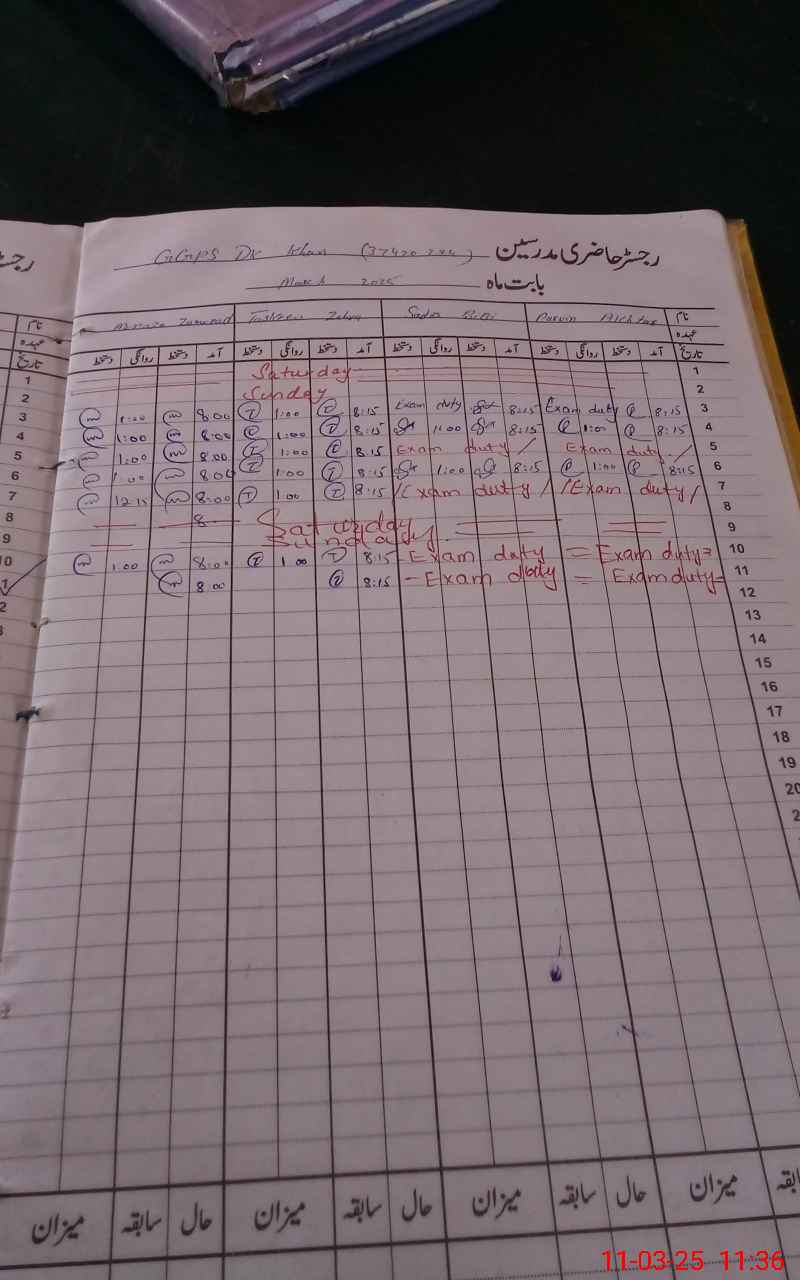 رجسٹر حاضری مدرسین GGPS Dk Khan (37420244)
بابت ماہ March 2025
نام Parvin Akhtar Sadia BiBi Tasleem Zahra Zamurad
عہدہ
تاریخ آمد دستخط روانگی دستخط آمد دستخط روانگی دستخط آمد دستخط روانگی دستخط آمد دستخط روانگی دستخط
1 Saturday
2 Sunday
1:00 8:00 1:00 8:15 Exam duty 8:15 Exam duty 8:15 3
1:00 8:00 1:00 8:15 1:00 8:15 1:00 8:15 4
1:00 8:00 1:00 8:15 Exam duty / Exam duty / 5
1:00 8:00 1:00 8:15 1:00 8:15 1:00 8:15 6
12:15 8:00 1:00 8:15 /Exam duty/ /Exam duty/ 7
8 Saturday 8
Sunday 9
1:00 8:00 1:00 8:15 Exam duty = Exam duty = 10
8:00 8:15 - Exam duty = Exam duty - 11
12
13
14
15
16
17
18
19
20
2
میزان سابقہ حال میزان سابقہ حال میزان سابقہ حال میزان
11-03-25 11:36